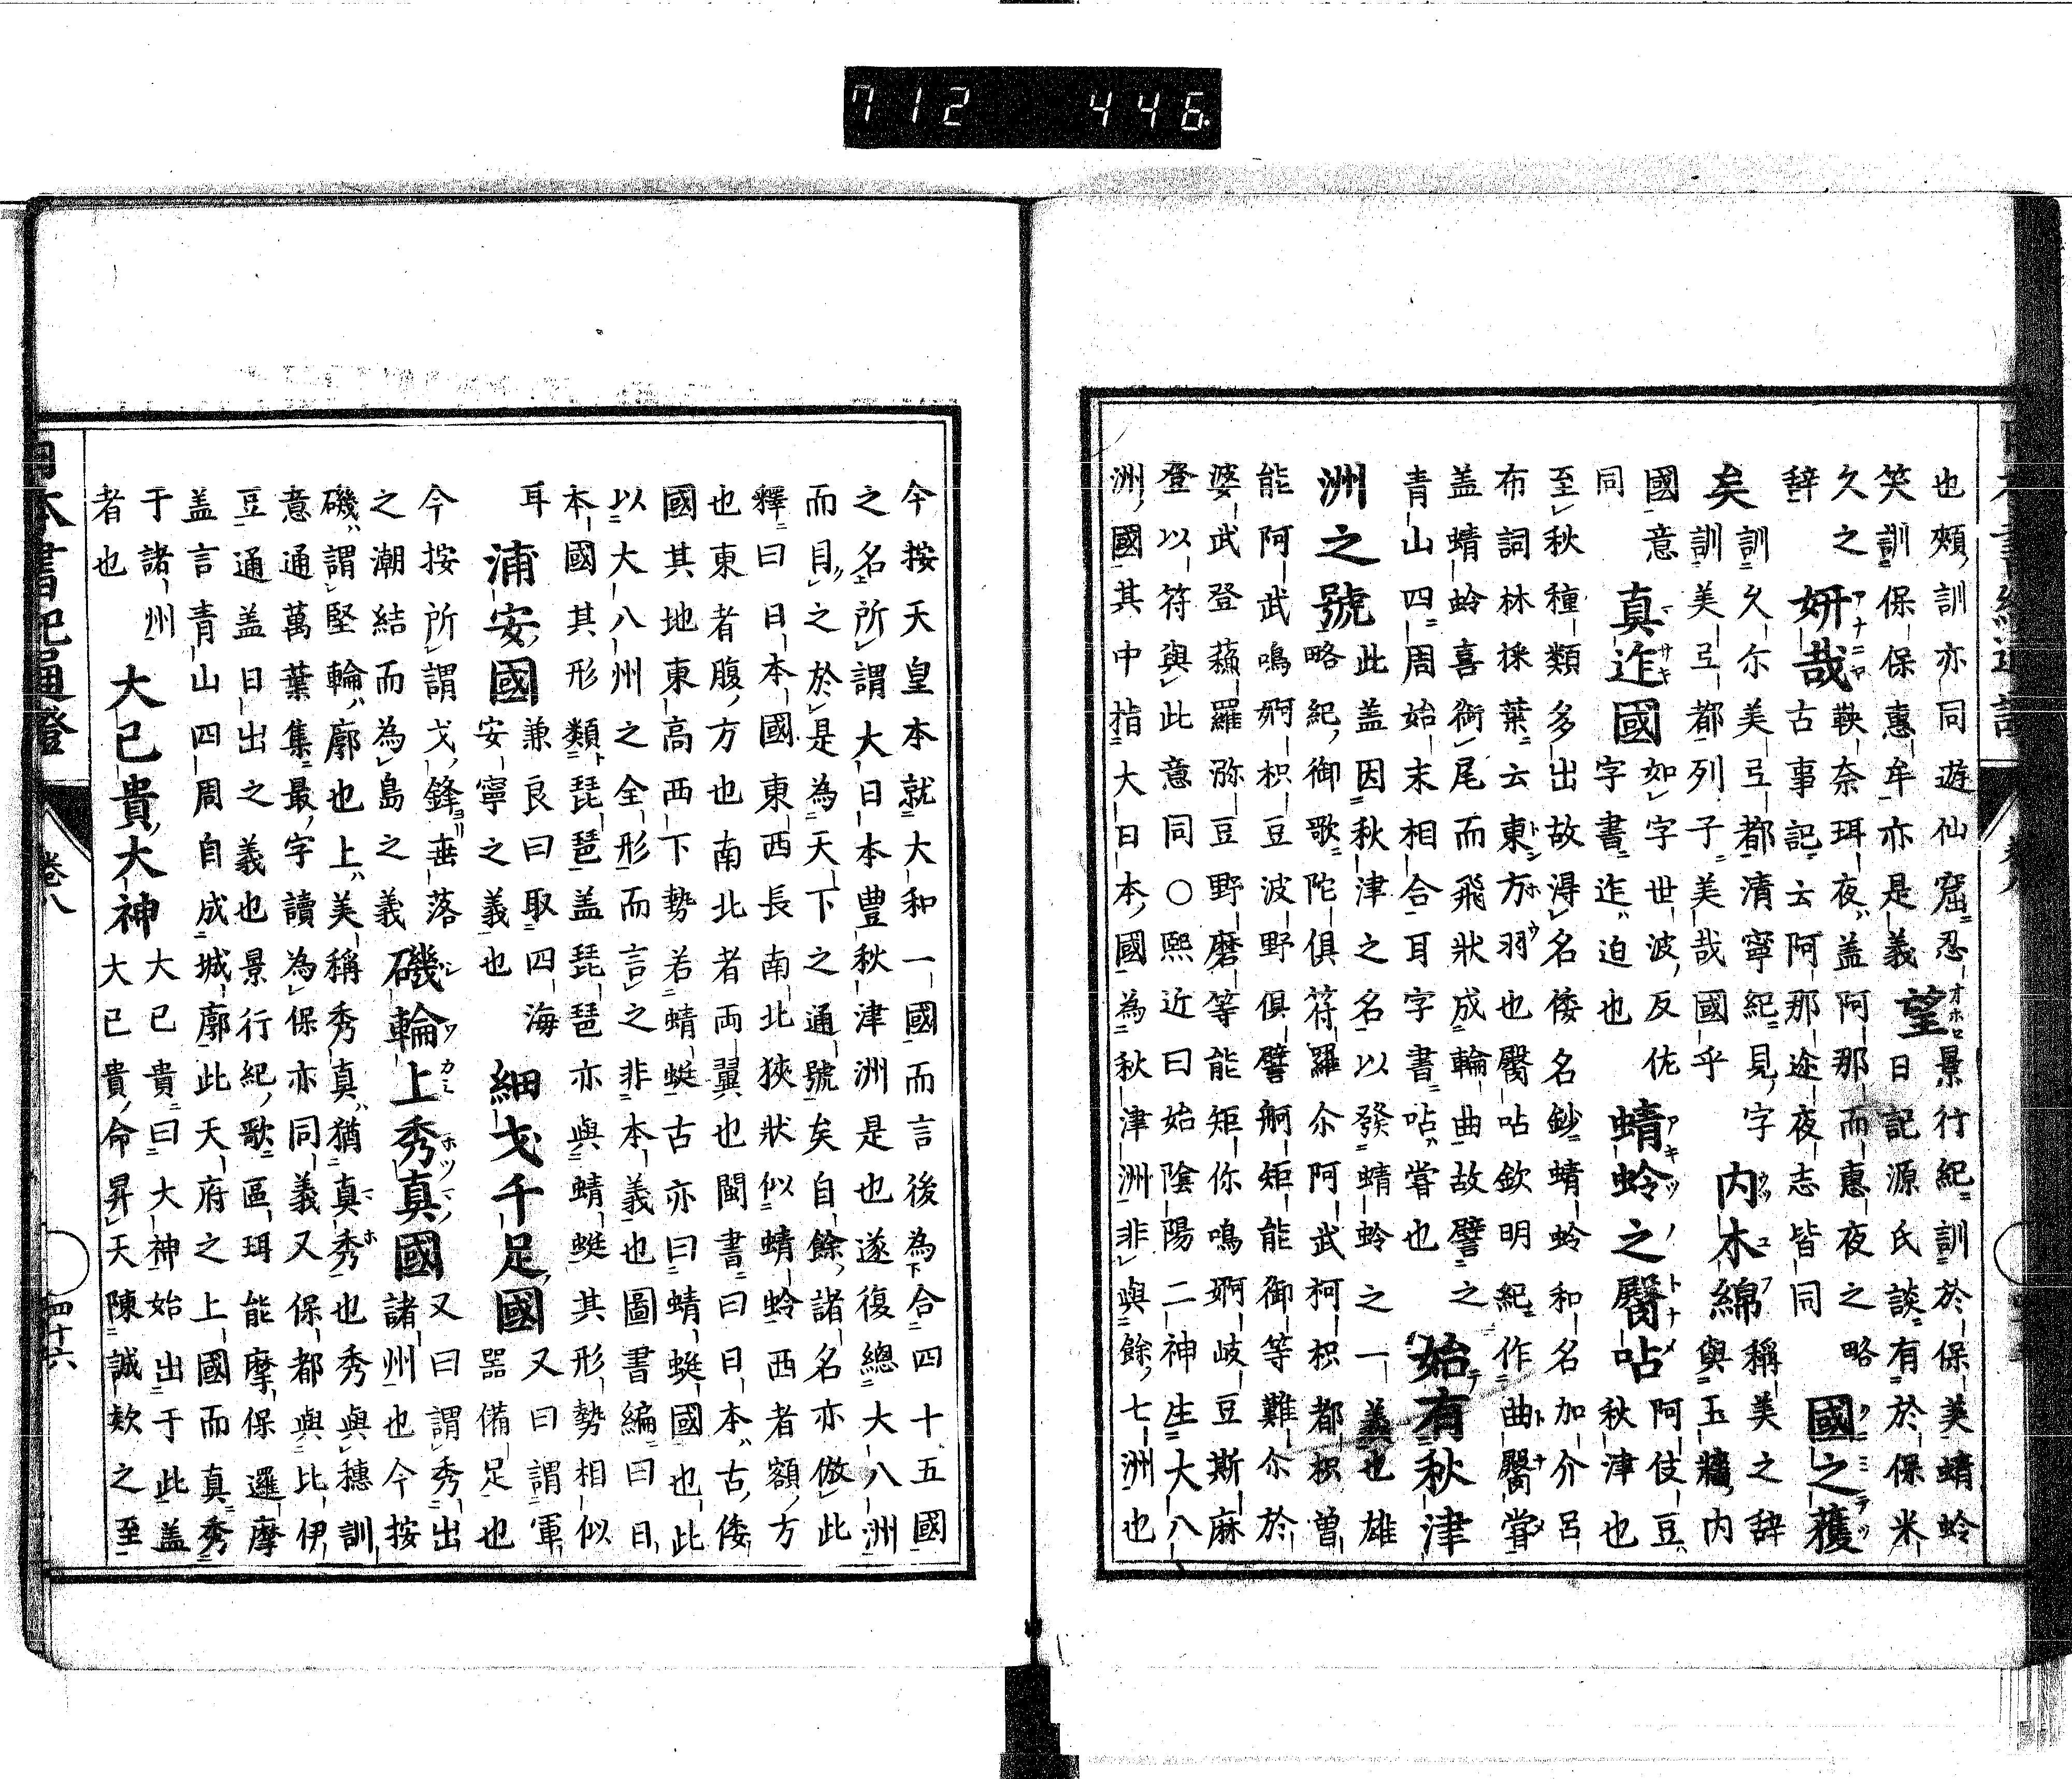 712 446
也頰訓亦同遊仙窟忍 景行紀訓於保美蜻蛉
笑訓保保惠牟亦是義 望 日記源氏談有於保米
久之 鞅奈珥夜盖阿那而惠夜之略
辞 妍哉 古事記云阿那途夜志皆同 國之蒦
矣 訓久尓美弖都清寧紀見字
訓美弖都列子美哉國乎 内木綿 稱美之辞
與玉牆内
國意 真迮國 如字世波反佐
同 字書迮迫也 蜻蛉之臀呫 阿伎豆
秋津也
至秋種類多出故淂名倭名鈔蜻蛉和名加介呂
布詞林採葉云東方羽也臀呫欽明紀作曲臀甞
盖蜻蛉喜銜尾而飛狀成輪曲故譬之
青山四周始末相合耳字書呫甞也 始有秋津
洲之號 此盖因秋津之名以發蜻蛉之一義也雄
略紀御歌陀倶符羅尒阿武柯枳都枳曽
能阿武鳴婀枳豆波野倶譬舸矩能御等難尒於
婆武登蘓羅濔豆野磨等能矩你鳴婀岐豆斯麻
登以符與此意同○熙近曰始陰陽二神生大八
洲國其中指大日本國為秋津洲非與餘七洲也
今按天皇本就大和一國而言後為合四十五國
之名所謂大日本豊秋津洲是也遂復總大八洲
而目之於是為天下之通號矣自餘諸名亦倣此
釋曰日本國東西長南北狹狀似蜻蛉西者額方
也東者腹方也南北者両翼也閩書曰日本古倭
國其地東高西下勢若蜻蜓古亦曰蜻蜓國也此
以大八州之全形而言之非本義也圖書編曰日
本國其形類琵琶盖琵琶亦與蜻蜓其形勢相似
耳 浦安國 兼良曰取四海
安寧之義也 細戈千足國 又曰謂軍
器備足也
今按所謂戈鋒垂落
之潮結而為島之義 磯輪上秀真國 又曰謂秀出
諸州也今按
磯謂堅輪廓也上美稱秀真猶真秀也秀與穗訓
意通萬葉集最字讀為保亦同義又保都與比伊
豆通盖日出之義也景行紀歌區珥能摩保邏摩
盖言青山四周自成城廓此天府之上國而真秀
于諸州
者也 大己貴大神 大己貴曰大神始出于此盖
大己貴命昇天陳誠欵之至
日本書紀通證 卷八 四十六